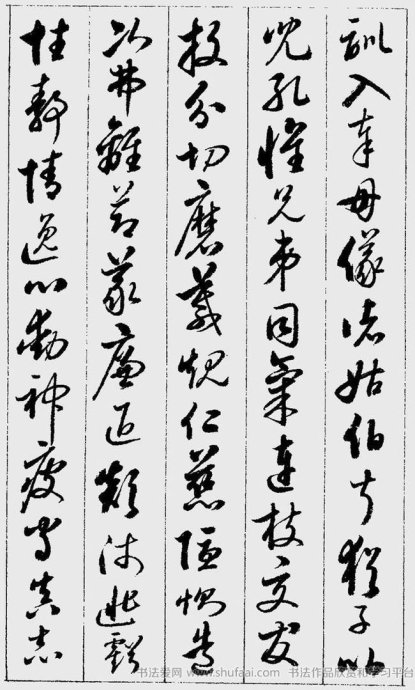 訓入奉母儀諸姑伯叔猶子比
兒孔懷兄弟同氣連枝交友
投分切磨箴規仁慈隱惻造
次弗離節義廉退顛沛匪虧
性靜情逸心動神疲守真志
书法爱网 www.shufaai.com 书法作品欣赏和学习平台